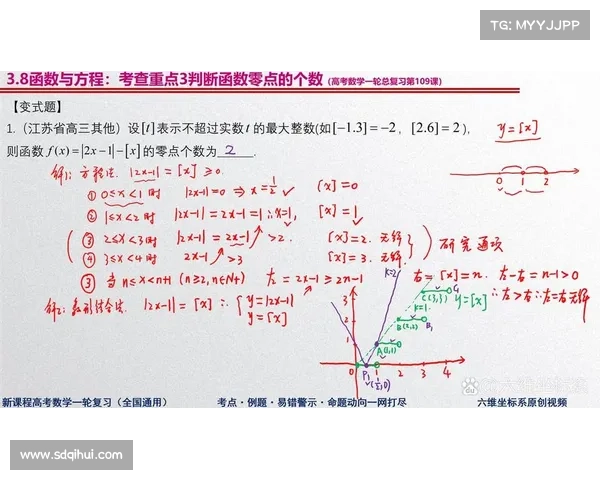 TG: MYYJJPP
3.8函数与方程：考查重点3判断函数零点的个数 (高考数学一轮总复习第109课)
【变式题】
1.（江苏省高三其他）设[t]表示不超过实数 t 的最大整数(如[−1.3]=−2，[2.6]=2），
则函数 f(x)=|2x−1|−[x]的零点个数为 2 .
y=[x]
0 1 2
解1: 方程法. |2x−1| = [x] ≥0.
① 0≤x<1 时 |2x−1|=0 ⇒ x=1/2 ✓ [x]=0
② 1≤x<2 时 |2x−1|=2x−1=1 ∴x=1, [x]=1 ✓
③ 2≤x<3 时 |2x−1|=2x−1>2. [x]=2. 无解
④ 3≤x<4 时 2x−1>3 [x]=3. 无解
研究通项
⑤ 当 n≤x<n+1 (n≥2,n∈N+) 左=2x−1≥2n−1
右=[x]=n. 左−右=n−1>0
∴左>右 ∴左=右无解
解2: 数形结合法. |2x−1|=[x] ∴ { y=|2x−1|
y=[x]
K=2
K=1
y=[x]
C(3,3)
C1
B(2,2)
B1
A(1,1)
P1
(1/2,0)
3
2
1
0 1 2 3 4
新课程高考数学一轮复习（全国通用）
考点·例题·易错警示·命题动向一网打尽
六维坐标系原创视频
www.sdqihui.com